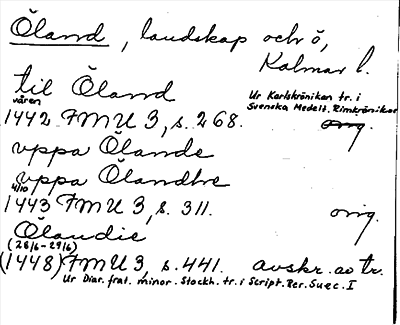 Öland, landskap och ö,
Kalmar l.
til Öland
våren
1442 FMU 3, s. 268.
Ur Karlskrönikan tr. i
Svenska Medelt. Rimkrönikor
orig.
uppa Ölande
uppa Ölandhe
4/10
1443 FMU 3, s. 311. orig.
Ölandie
(28/6-29/6)
(1448) FMU 3, s. 441. avskr. ao tr.
Ur Diar. frat. minor. Stockh. tr. i Script. Rer. Suec. I